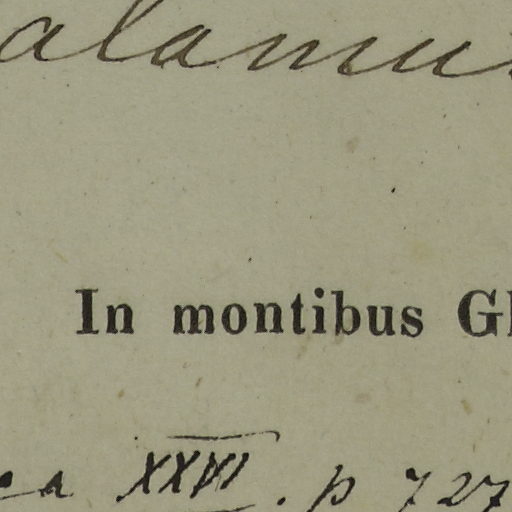 alamu
In montibus Gh
ca XXVI. p 727